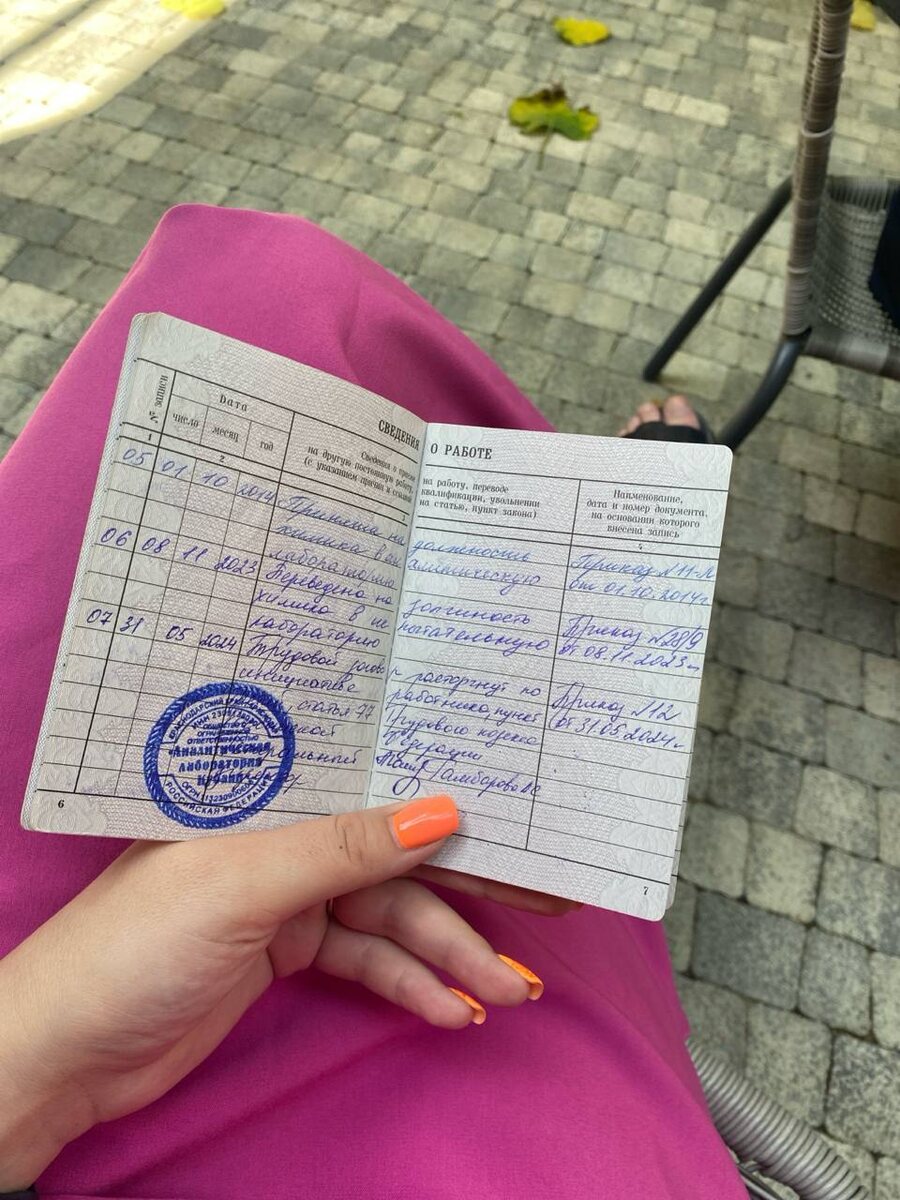 СВЕДЕНИЯ О РАБОТЕ
№ записи
Дата
число
месяц
год
Сведения о приеме
на работу, переводе
на другую постоянную работу,
квалификации, увольнении
(с указанием причин и
на статью, пункт закона)
Наименование,
дата и номер документа,
на основании которого
внесена запись
1
2
3
4
05 01 10 2014 Принята на должность Приказ №11-Л
химика в аналитическую от 01.10.2014г
лабораторию
06 08 11 2023 Переведена на должность Приказ №28/9
химика в испытательную от 08.11.2023г
лабораторию
07 31 05 2024 Трудовой договор расторгнут по Приказ №12
инициативе работника, пункт от 31.05.2024г
статья 77 Трудового кодекса
Федерации
КРАСНОДАРСКИЙ
ОБЩЕСТВО С
ОГРАНИЧЕННОЙ
ОТВЕТСТВЕННОСТЬЮ
"Аналитическая
лаборатория
Кубани"
ОГРН
РОССИЙСКАЯ ФЕДЕРАЦИЯ
6
7